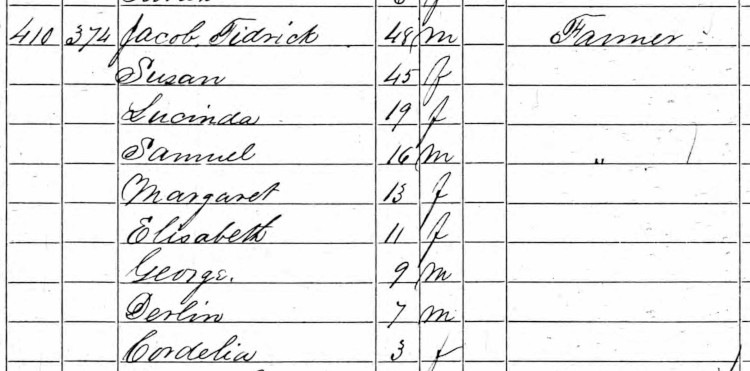 410 374 Jacob Tidrick 48 m Farmer
Susan 45 f
Lucinda 19 f
Samuel 16 m "
Margaret 13 f
Elisabeth 11 f
George. 9 m
Derlin 7 m
Cordelia 3 f